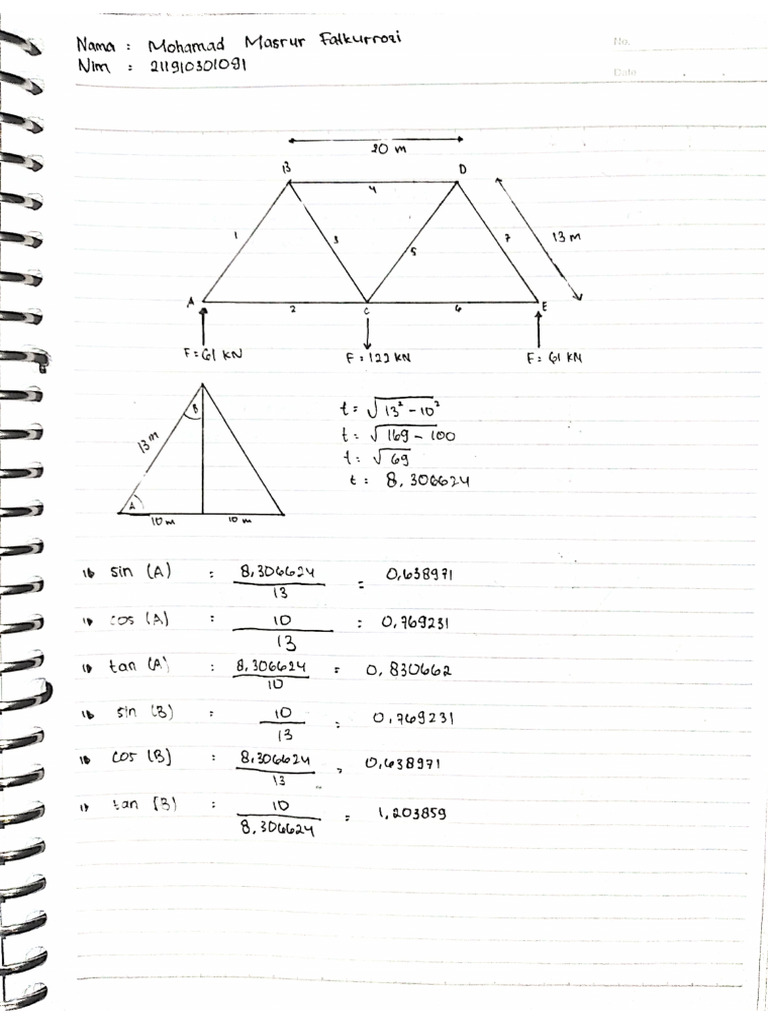 Nama : Mohamad Masrur Falkurrozi
Nim : 211910301091
No.
Date
20 m
B
D
4
1
3
5
7
13 m
A
2
C
6
E
F = 61 KN
F = 122 KN
F = 61 KN
B
13 m
A
10 m
10 m
t = √13² - 10²
t = √169 - 100
t = √69
t = 8,306624
sin (A) : 8,306624 / 13 = 0,638971
cos (A) : 10 / 13 = 0,769231
tan (A) : 8,306624 / 10 = 0,830662
sin (B) : 10 / 13 = 0,769231
cos (B) : 8,306624 / 13 = 0,638971
tan (B) : 10 / 8,306624 = 1,203859